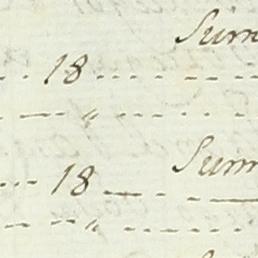 Sum
18
"
Sum
18
"